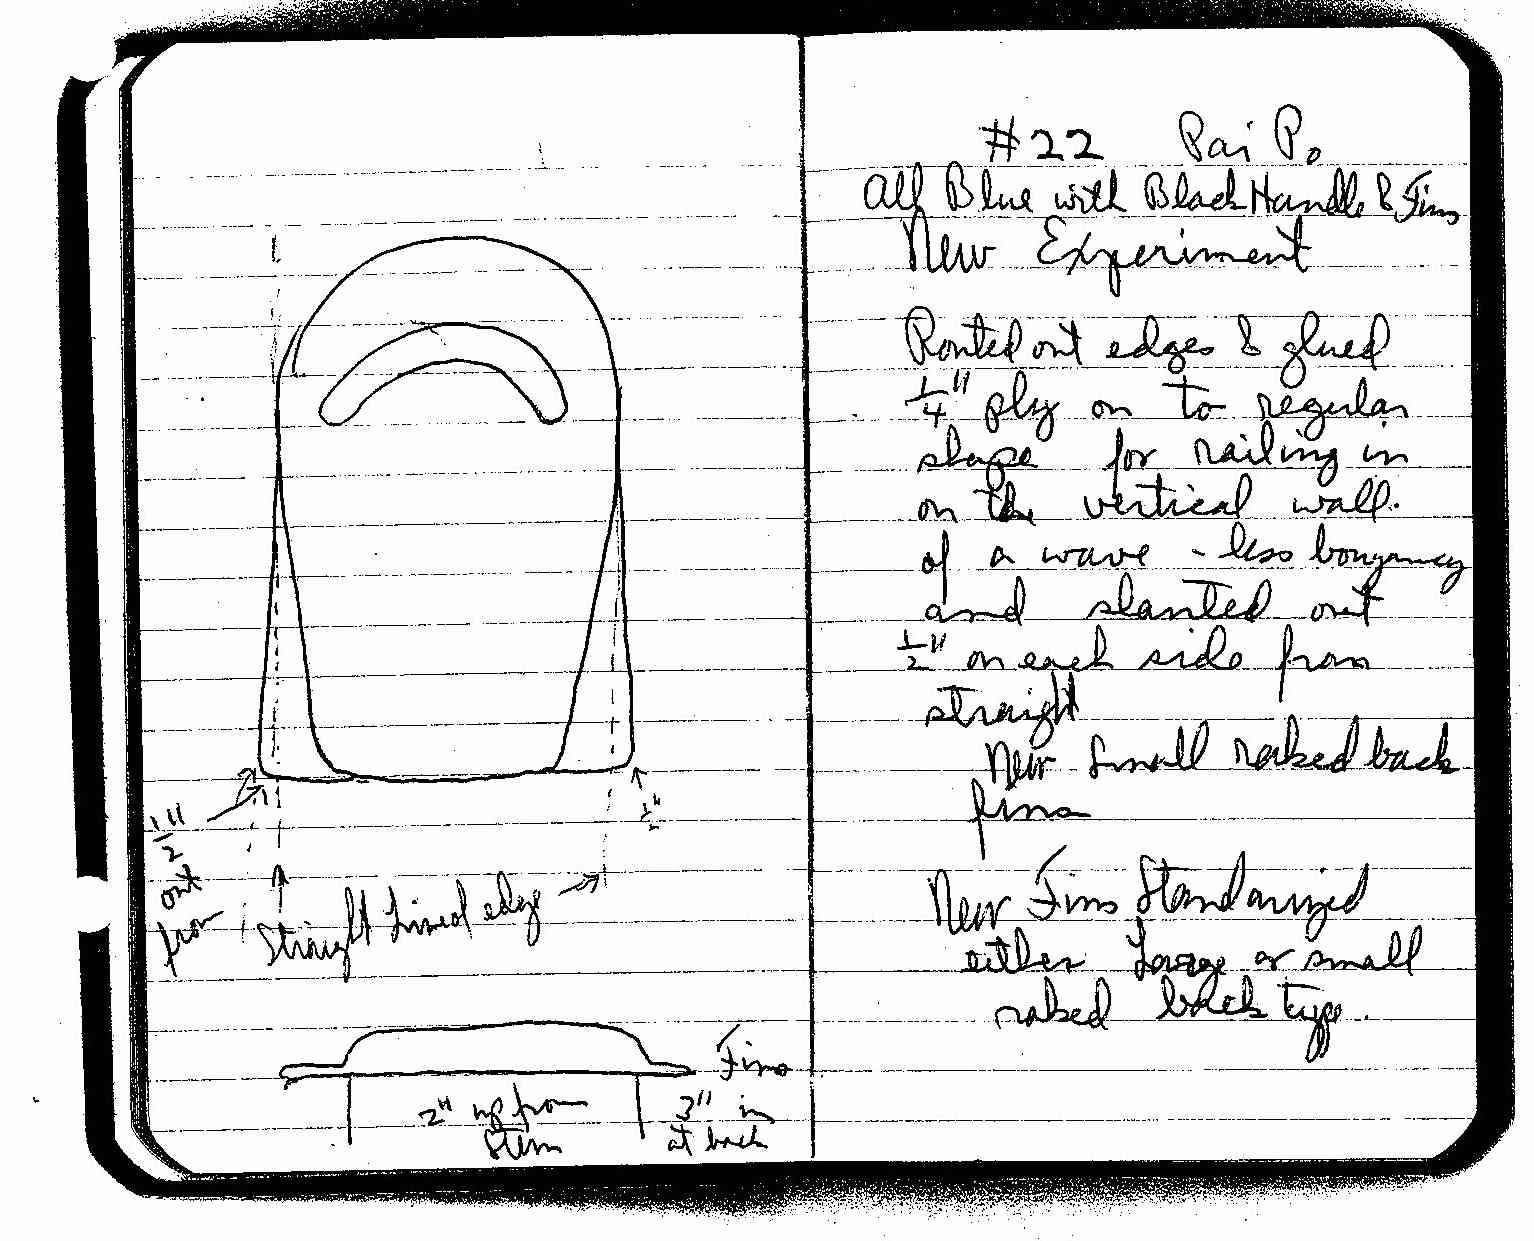 1/2"
out
from
Straight Lined edge
1/2"
Fins
2" up from
Stern
3" in
at back
#22 Pai Po
All Blue with Black Handle & Fins
New Experiment
Routed out edges & glued
1/4" ply on to regular
shape for railing in
on the vertical wall.
of a wave - less bouyancy
and slanted out
1/2" on each side from
straight
New Small raked back
fins
New Fins Standarized
either Large or small
raked back type.